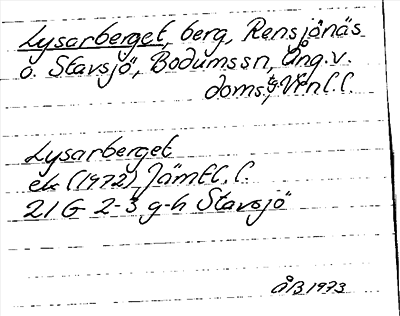 Lysarberget, berg, Rensjönäs
o. Stavsjö, Bodumssn, Ång.v.
doms.,
Lysarberget
ek (1972), Jämtl. l.
21G 2-3 g-h Stavsjö
ÅB 1973